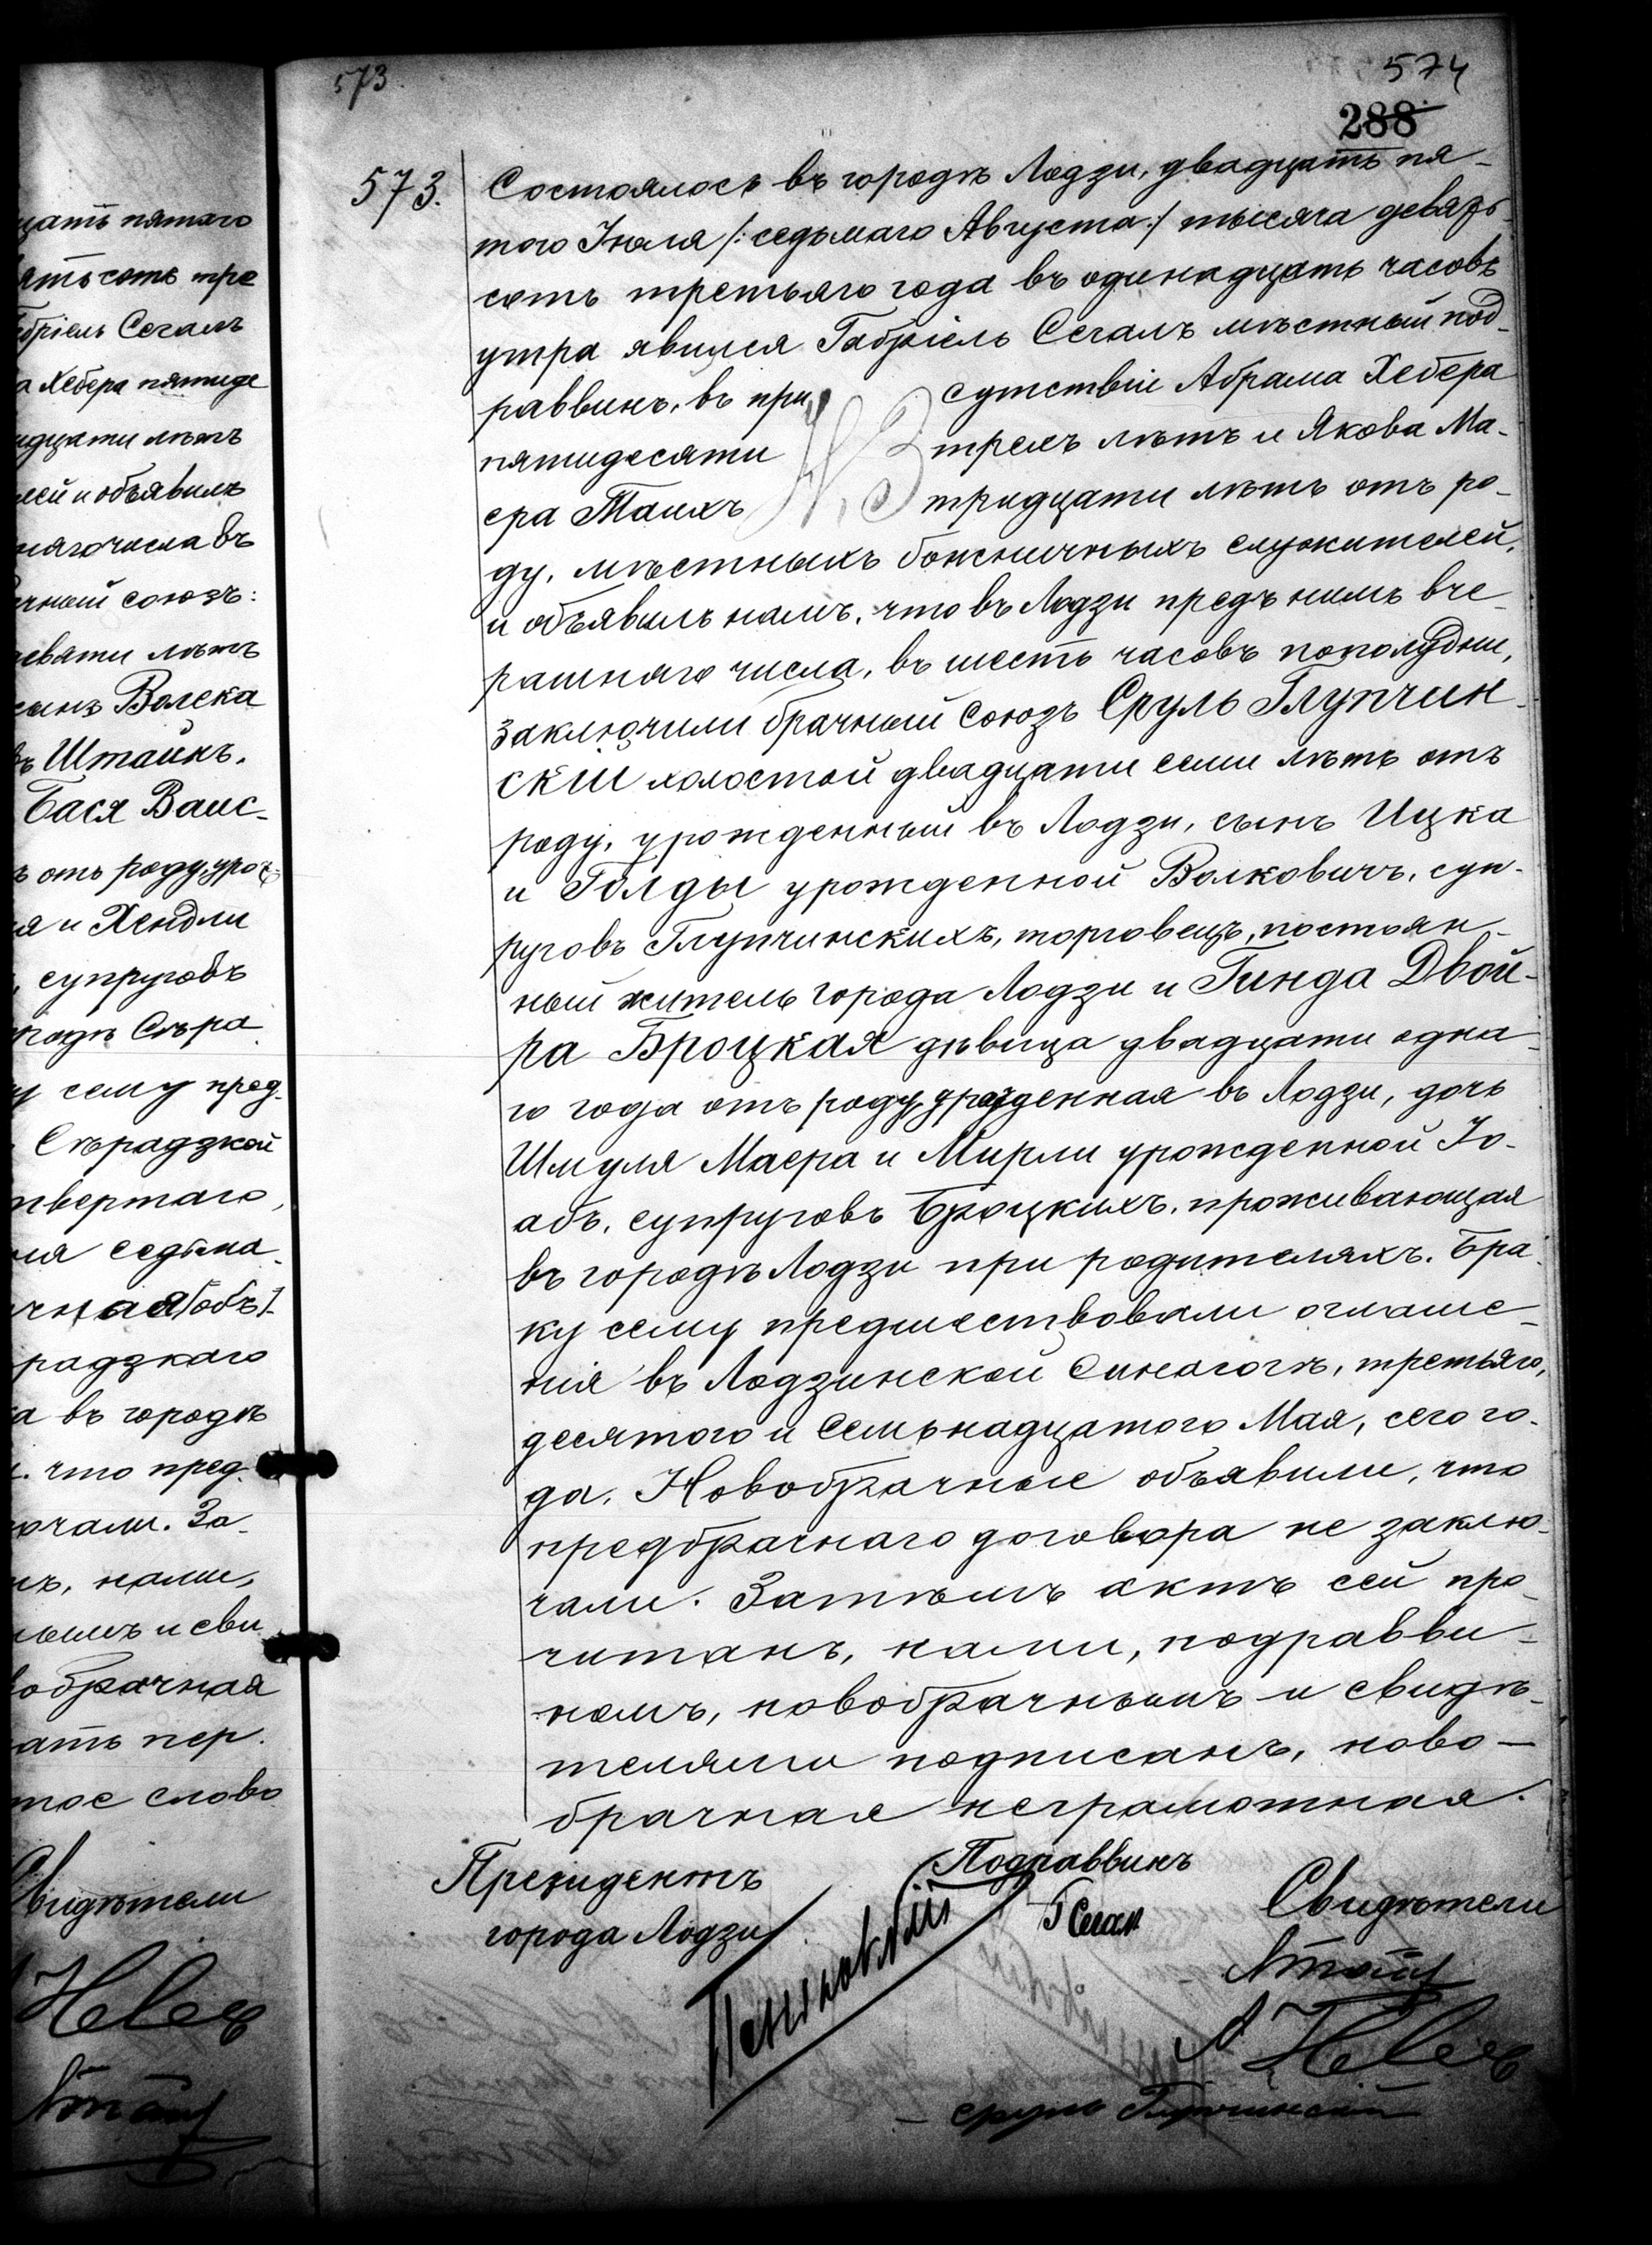 573
574
288
573.
Состоялось въ городѣ Лодзи, двадцать пя-
того Іюля /: седьмаго Августа :/ тысяча девять-
сотъ третьяго года въ одинадцать часовъ
утра явился Габріель Сегалъ мѣстный под-
раввинъ, въ присутствіи Абрама Хебера
пятидесяти трехъ лѣтъ и Якова Ма-
ера Таихъ тридцати лѣтъ отъ ро-
ду, мѣстныхъ божничныхъ служителей,
и объявилъ намъ, что въ Лодзи предъ нимъ вче-
рашняго числа, въ шесть часовъ пополудни,
заключили брачный союзъ Сруль Глупчин-
скій холостой двадцати семи лѣтъ отъ
роду, урожденный въ Лодзи, сынъ Ицка
и Голды урожденной Волковичъ, суп-
руговъ Глупчинскихъ, торговецъ, постоян-
ный житель города Лодзи и Гинда Двой-
ра Броцкая дѣвица двадцати одна-
го года отъ роду, урожденная въ Лодзи, дочь
Шмуля Маера и Мирли урожденной Іо-
абъ, супруговъ Броцкихъ, проживающая
въ городѣ Лодзи при родителяхъ. Бра-
ку сему предшествовали оглаше-
нія въ Лодзинской Синагогѣ, третьяго,
десятого и семьнадцатого Мая, сего го-
да. Новобрачные объявили, что
предбрачнаго договора не заклю-
чали. Затѣмъ актъ сей про-
читанъ, нами, подравви-
номъ, новобрачнымъ и свидѣ-
телями подписанъ, ново-
брачная неграмотная.
Президентъ
города Лодзи
Пеньковскій
Подраввинъ
Г Сегал
Свидѣтели
А Heber
Сруль Глупчинскій
цать пятаго
ять сотъ тре
бріель Сегалъ
а Хебера пятиде
идцати лѣтъ
лей и объявилъ
няго числа въ
чный союзъ:
девяти лѣтъ
сынъ Волека
въ Штаинъ.
Бася Ваис-
ъ отъ роду, уро
я и Хендли
, супруговъ
родѣ Сѣра
у сему пред-
Сѣрадзкой
твертаго,
ля седьма-
чная /объ/
радзкаго
а въ городѣ
. что пред-
ючали. За-
ъ, нами,
нымъ и сви
вобрачная
ать пер.
тое слово
Свидѣтели
Heber